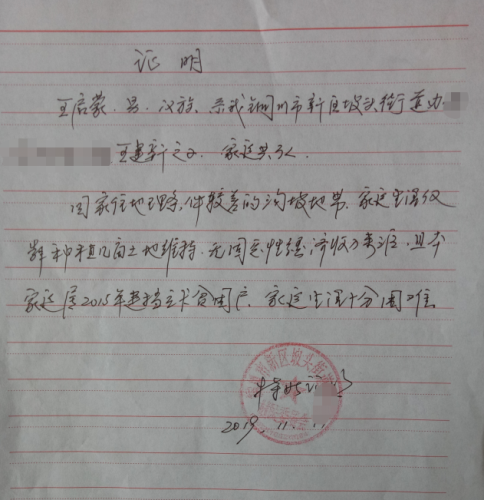 证明
王启蒙，男，汉族，系我铜川市新区坡头街道办
王建新之子，家庭共 人。
因家住地理条件较差的沟坡地带，家庭生活仅
靠种植几亩土地维持，无固定性经济收入来源，且本
家庭属2015年建档立卡贫困户，家庭生活十分困难
特此证
市新区坡头街
2019.11.